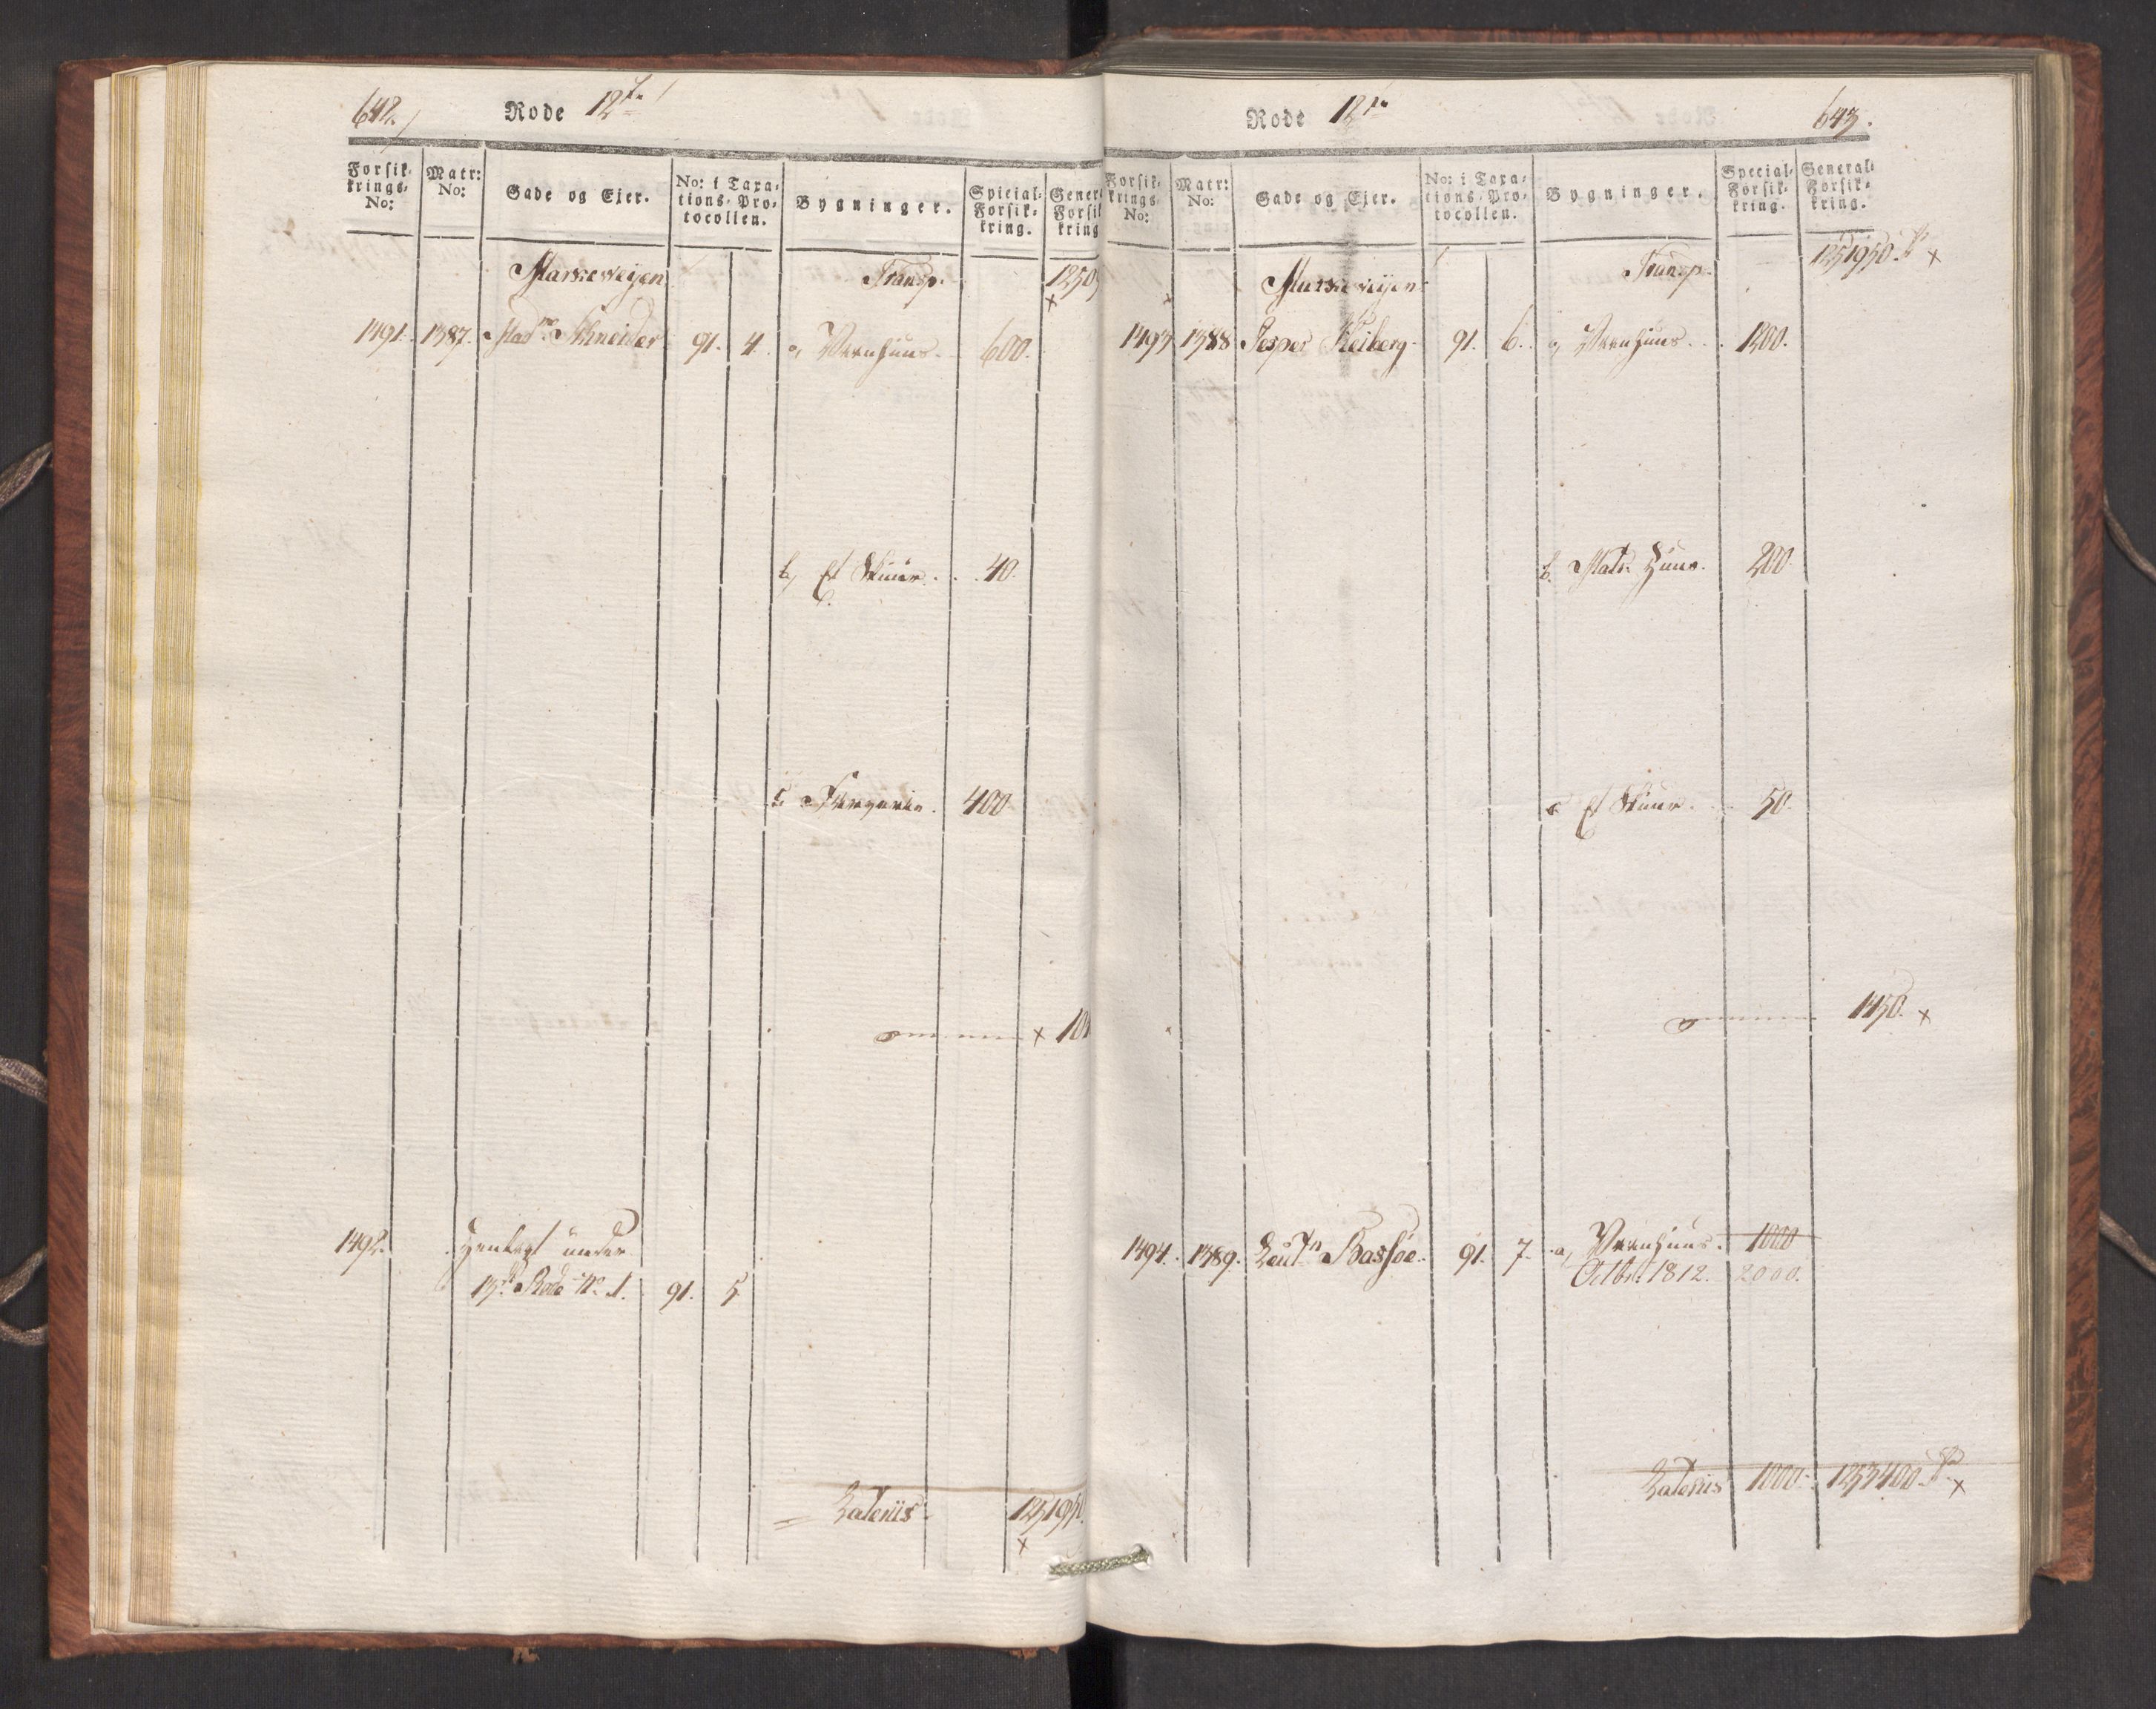 642.
Rode 12te
Forsik-
krings-
No:
Matr:
No:
Gade og Eier.
No: i Taxa-
tions-Pro-
tocollen.
Bygninger.
Spicial-
Forsik-
kring.
Gener
Forsik
kring
Markeveijen
Transp.
1250
×
1491. 1387. Mad. Schneider 91. 4. a, Vaanhuus. 600.
b, Et Skuur. . . 40.
c 400.
× 104
1492. Henlagt under
13de Rode No. 1. 91. 5
Lateriis 125195
×
Rode 12te
643.
Forsik-
krings
No:
Matr:
No:
Gade og Ejer.
No: i Taxa-
tions-Pro-
tocollen.
Bygninger.
Special-
Forsik-
kring.
General-
Forsik-
kring.
Markeveijen
Transp.
1251950. ×
1493 1388 Jesper Heiberg 91. 6. a, Vaanhuus . . 1200.
b. Matr. Huus. 200.
c Et Skuur. . . 50.
1450. ×
1494. 1389. Leutn Bassøe. 91. 7. a, Vaanhuus. 1000
Octbr. 1812. 2000.
Lateriis 1000. 1253400. ×